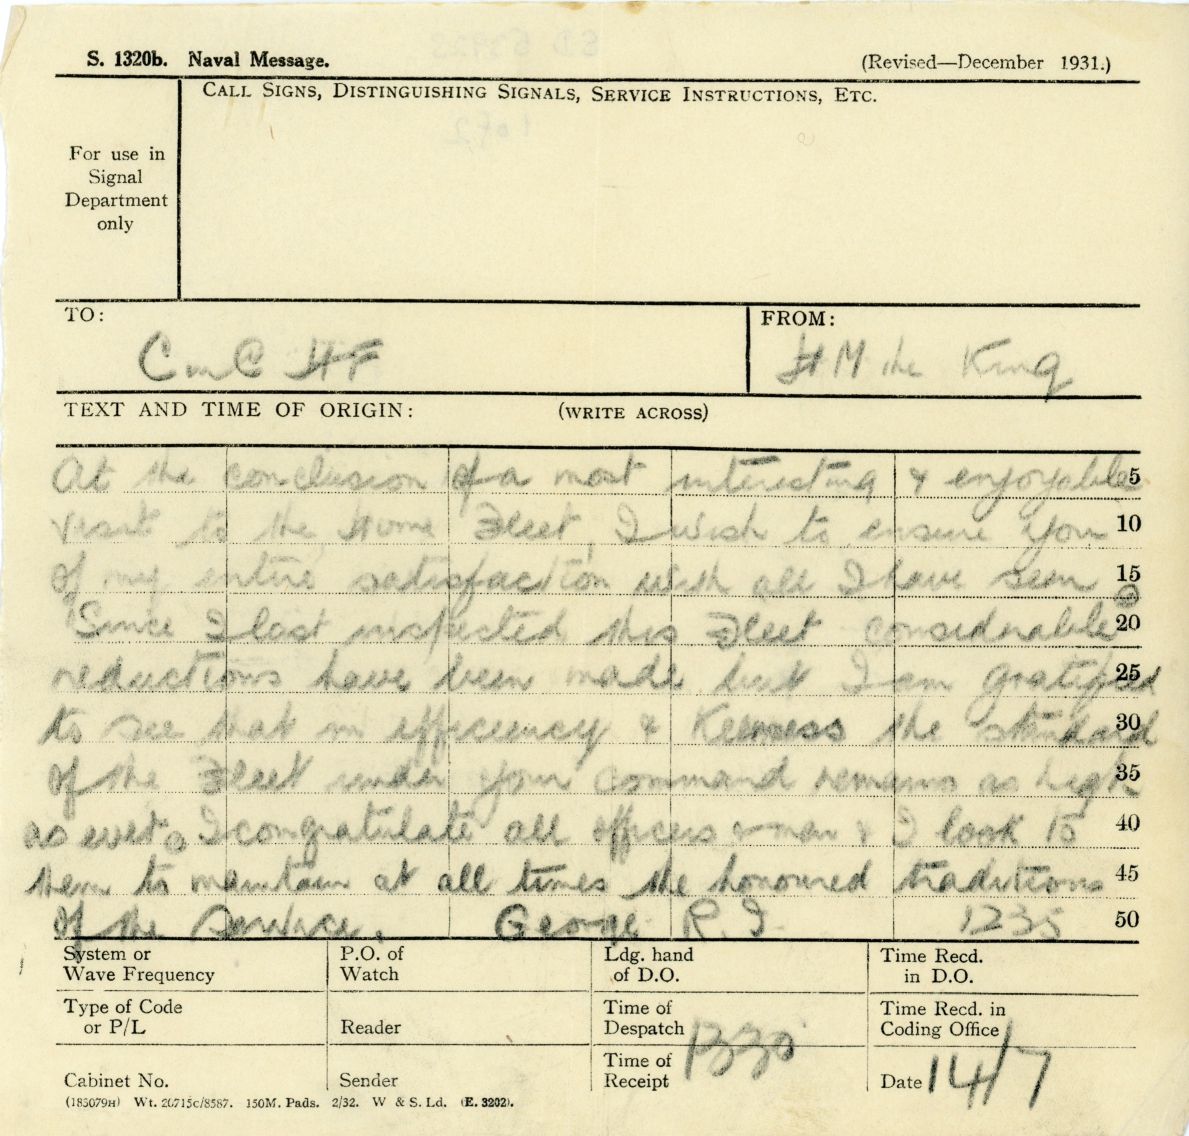 S. 1320b. Naval Message.
(Revised—December 1931.)
CALL SIGNS, DISTINGUISHING SIGNALS, SERVICE INSTRUCTIONS, ETC.
For use in
Signal
Department
only
TO:
C in C HF
FROM:
H M the King
TEXT AND TIME OF ORIGIN: (WRITE ACROSS)
At the conclusion of a most interesting & enjoyable 5
visit to the Home Fleet, I wish to ensure you 10
of my entire satisfaction with all I have seen 15
Since I last inspected this Fleet considerable 20
reductions have been made but I am gratified 25
to see that in efficiency & Keenness the standard 30
of the Fleet under your command remains as high 35
as ever. I congratulate all officers & men & I look to 40
them to maintain at all times the honoured traditions 45
of the Service. George R. I 1235 50
System or
Wave Frequency
P.O. of
Watch
Ldg. hand
of D.O.
Time Recd.
in D.O.
Type of Code
or P/L
Reader
Time of
Despatch
Time Recd. in
Coding Office
Cabinet No.
Sender
Time of
Receipt
1330
Date 14/7
(183079H) Wt. 20715c/8587. 150M. Pads. 2/32. W & S. Ld. (E. 3202).